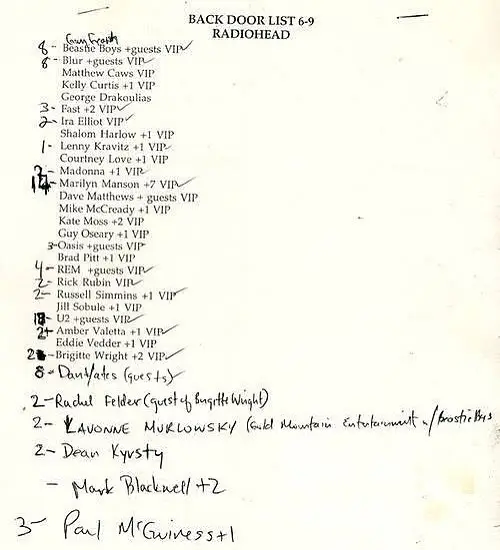 BACK DOOR LIST 6-9
RADIOHEAD
8 - Beastie Boys +guests VIP ✓
8 - Blur +guests VIP ✓
Matthew Caws VIP
Kelly Curtis +1 VIP
George Drakoulias
3 - Fast +2 VIP ✓
2 - Ira Elliot VIP ✓
Shalom Harlow +1 VIP
1 - Lenny Kravitz +1 VIP ✓
Courtney Love +1 VIP
2 - Madonna +1 VIP ✓
14 - Marilyn Manson +7 VIP ✓
Dave Matthews + guests VIP
Mike McCready +1 VIP
Kate Moss +2 VIP
Guy Oseary +1 VIP
3 - Oasis +guests VIP
Brad Pitt +1 VIP
4 - REM +guests VIP ✓
2 - Rick Rubin VIP ✓
2 - Russell Simmins +1 VIP ✓
Jill Sobule +1 VIP
- U2 +guests VIP ✓
2 - Amber Valetta +1 VIP ✓
Eddie Vedder +1 VIP
2 - Brigitte Wright +2 VIP ✓
8 - (guests)
2 - Rachel Felder (guest of Brigitte Wright)
2 - LAVONNE MURLOWSKY (Gold Mountain Entertainment w/ Beastie Boys
2 - Dean Kyrsty
- Mark Blackwell +2
3 - Paul McGuiness +1